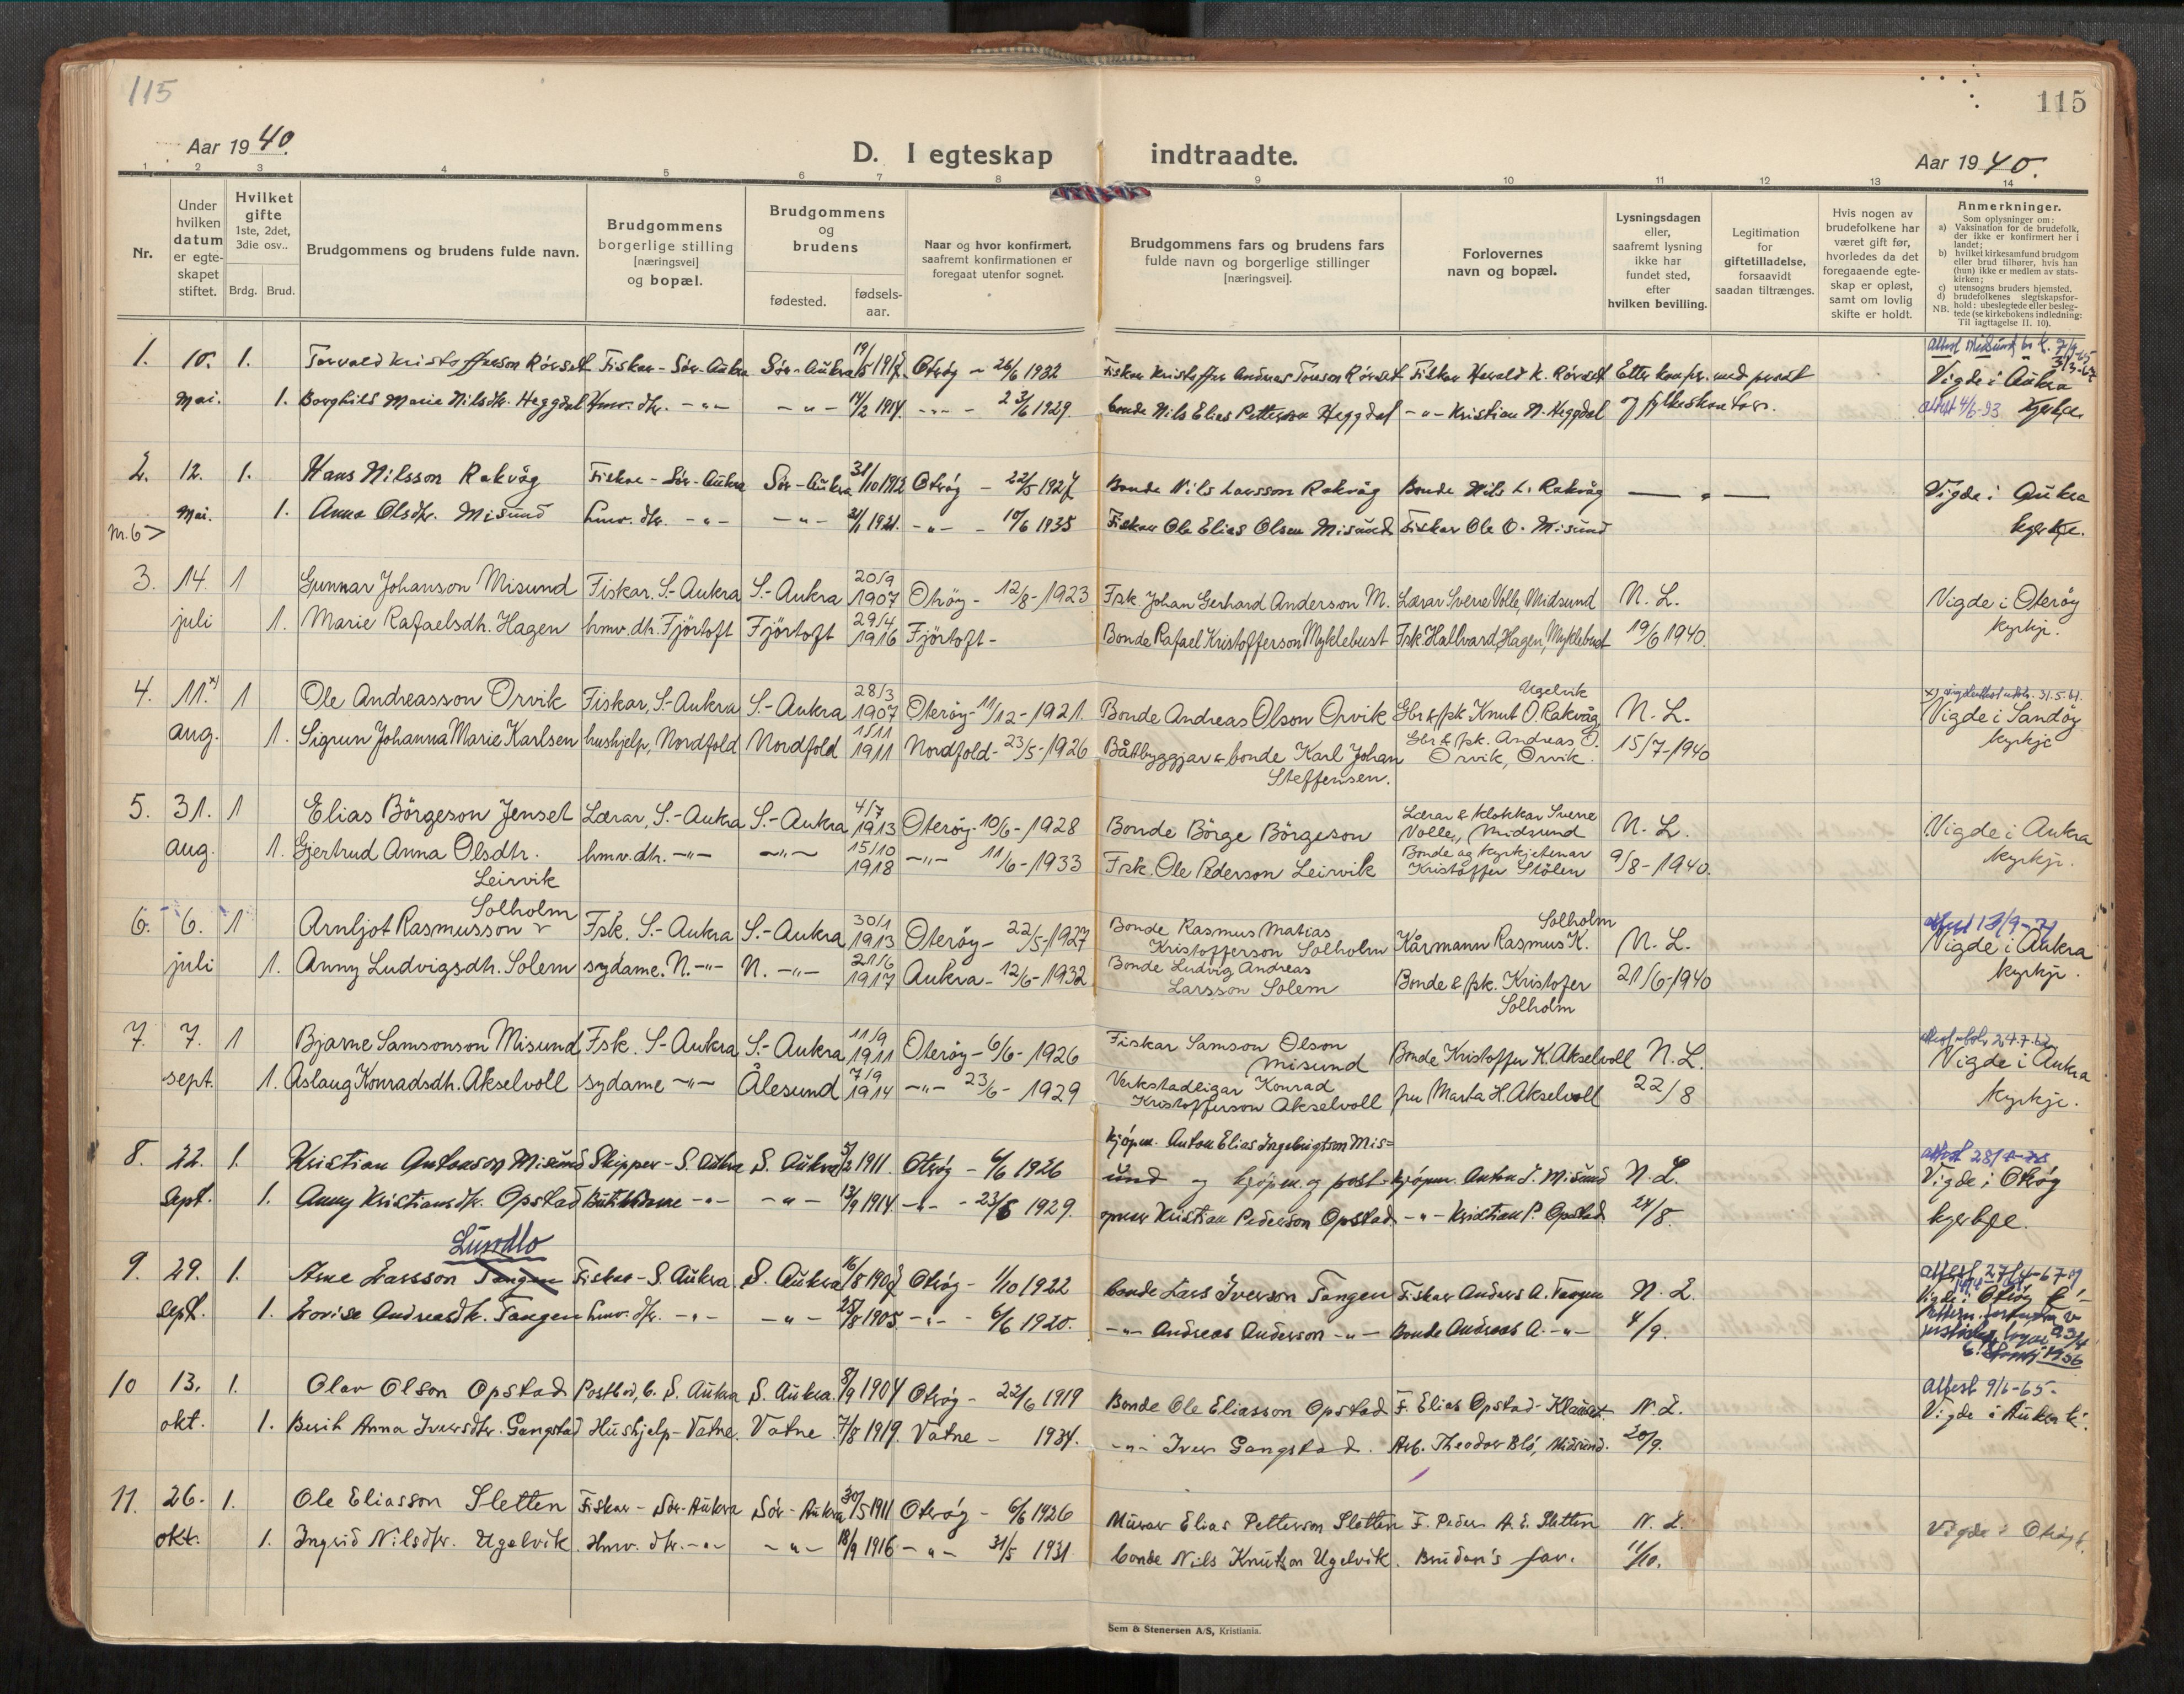 115
115
Aar 1940.
D. I egteskap indtraadte.
Aar 1940.
1 2 3 4 5 6 7 8 9 10 11 12 13 14
Nr.
Under hvilken datum er egteskapet stiftet.
Hvilket gifte 1ste, 2det, 3die osv..
Brdg. Brud.
Brudgommens og brudens fulde navn.
Brudgommens borgerlige stilling [næringsvei] og bopæl.
Brudgommens og brudens
fødested.
fødsels-aar.
Naar og hvor konfirmert, saafremt konfirmationen er foregaat utenfor sognet.
Brudgommens fars og brudens fars fulde navn og borgerlige stillinger [næringsvei].
Forlovernes navn og bopæl.
Lysningsdagen eller, saafremt lysning ikke har fundet sted, efter hvilken bevilling.
Legitimation for giftetilladelse, forsaavidt saadan tiltrænges.
Hvis nogen av brudefolkene har været gift før, hvorledes da det foregaaende egteskap er opløst, samt om lovlig skifte er holdt.
Anmerkninger.
Som oplysninger om:
a) Vaksination for de brudefolk, der ikke er konfirmert her i landet;
b) hvilket kirkesamfund brudgom eller brud tilhører, hvis han (hun) ikke er medlem av statskirken;
c) utensogns bruders hjemsted.
d) brudefolkenes slegtskapsforhold: ubeslegtede eller beslegtede (se kirkebokens indledning: Til iagttagelse II. 10).
NB.
1. 10. 1. Torvald Kristofferson Rørset Fiskar - Sør-Aukra Sør-Aukra 19/5 1917. Otrøy - 26/6 1932 Fiskar Kristoffer Andreas Tomson Rørset Fiskar Harald K. Rørset Etter
Vigde i Aukra
mai. 1. Borghild Marie Nilsdtr. Heggdal Hmv. dtr. -"- -"- 14/2 1914. -"- 23/6 1929. bonde Nils Elias Petterson Heggdal -"- Kristian N. Heggdal
attest 4/6-93 kyrkje.
2. 12. 1. Hans Nilsson Rakvåg Fiskar - Sør-Aukra Sør-Aukra 31/10 1912 Otrøy - 22/5 1927 Bonde Nils Larsson Rakvåg Bonde Nils L. Rakvåg — " — Vigde i Aukra
mai. 1. Anna Olsdtr. Misund hmv. dtr. -"- -"- 1921. -"- 10/6 1935 Fiskar Ole Elias Olsen Misund Fiskar Ole O. Misund kyrkje.
Nr. 6 >
3. 14. 1 Gunnar Johanson Misund Fiskar. S.-Aukra S.-Aukra 20/9 1907 Otrøy - 12/8-1923 Fsk. Johan Gerhard Anderson M. Lærar Sverre Volle, Midsund N. L. Vigde i Oterøy
juli 1. Marie Rafaelsdh. Hagen hmv. dh. Fjörtoft Fjörtoft 29/4 1916 Fjörtoft - Bonde Rafael Kristofferson Myklebust Fsk. Hallvard Hagen, Myklebust 19/6 1940. kyrkje.
4. 11.x) 1 Ole Andreasson Orvik Fiskar, S.-Aukra S.-Aukra 28/3 1907 Oterøy - 11/12-1921. Bonde Andreas Olson Orvik Gbr & fsk Knut O. Rakvåg, Ugelvik N. L. Vigde i Sandøy
aug. 1. Sigrun Johanna Marie Karlsen hushjelp, Nordfold Nordfold 1/11 1911 Nordfold - 23/5-1926 Båtbyggjar & bonde Karl Johan Steffensen. Gbr & fsk. Andreas O. Orvik, Orvik. 15/7-1940 kyrkje
5. 31. 1 Elias Börgeson Jenset Lærar, S.-Aukra S.-Aukra 4/7 1913 Oterøy - 10/6-1928 Bonde Börge Börgeson Lærar & klokkar Sverre Volle, Midsund N. L. Vigde i Aukra
aug. 1. Gjertrud Anna Olsdtr. Leirvik hmv. dh. -"- -"- 15/10 1918 -"- 11/6-1933 Fsk. Ole Pederson Leirvik Bonde og kyrkjetenar Kristoffer Stölen 9/8-1940. kyrkje.
6. 6. 1 Arnljot Rasmusson Solholm Fsk. S.-Aukra S.-Aukra 30/1 1913 Oterøy - 22/5-1927 Bonde Rasmus Matias Kristofferson Solholm Kårmann Rasmus K. Solholm N. L. Vigde i Aukra
juli 1. Anny Ludvigsdh. Solem sydame. N. -"- N. -"- 21/6 1917 Aukra - 12/6-1932 Bonde Ludvig Andreas Larsson Solem Bonde & fsk. Kristofer Solholm 21/6-1940 kyrkje.
7. 7. 1 Bjarne Samsonson Misund Fsk. S-Aukra S.-Aukra 11/9 1911 Oterøy - 6/6-1926 Fiskar Samson Olson Misund Bonde Kristoffer K. Akselvoll N. L. Vigde i Aukra
sept. 1. Aslaug Konradsdh. Akselvoll sydame -"- Ålesund 7/9 1914 -"- 23/6-1929 Verkstadeigar Konrad Kristofferson Akselvoll fru Marta H. Akselvoll 22/8 kyrkje.
8. 22. 1. Kristian Antonson Misund Skipper - S. Aukra S. Aukra 1911. Otrøy - 6/6 1926 kjöpm. Anton Elias Ingebrigtson Misund og kjöpm. og post- kjöpm. Anton I. Misund N. L. Vigde i Otrøy
Sept. 1. Anny Kristiansdtr. Opstad -"- -"- 13/9 1914. -"- - 23/6 1929. opner Kristian Pederson Opstad -"- Kristian P. Opstad 24/8. kyrkje.
9. 29. 1. Arne Larsson Tangen Lundlo Fiskar - S. Aukra. S. Aukra 16/8 Otrøy - 1/10 1922 bonde Lars Iverson Tangen Fiskar Anders A. Tangen N. L.
Sept. 1. Lovise Andreasdtr. Tangen hmv. dtr. -"- -"- 25/8 1905. -"- - 6/6 1920. -"- Andreas Anderson -"- Bonde Andreas A. -"- 4/9.
10 13. 1. Olav Olson Opstad Postbod, b. S. Aukra S. Aukra. 8/9 1904 Otrøy - 22/6 1919 Bonde Ole Eliasson Opstad F. Elias Opstad - Klauset N. L. Attest 9/6-65- Vigde i Aukra k.
okt. 1. Berit Anna Iversdtr. Gangstad Hushjelp - Vatne. Vatne. 7/8 1919. Vatne - 1934. -"- Iver Gangstad. Arb. Theodor Blø, Midsund. 20/9.
11. 26. 1. Ole Eliasson Sletten Fiskar - Sør-Aukra Sør-Aukra 30/5 1911 Otrøy - 6/6 1926 Murar Elias Petterson Sletten F. Peder A. E. Sletten N. L. Vigde i Otrøy k.
okt. 1. Ingrid Nilsdtr. Ugelvik. Hmv. dtr. -"- -"- 18/9 1916 -"- 31/5 1931 bonde Nils Knutson Ugelvik. Brudens far. 11/10.
Sem & Stenersen A/S, Kristiania.